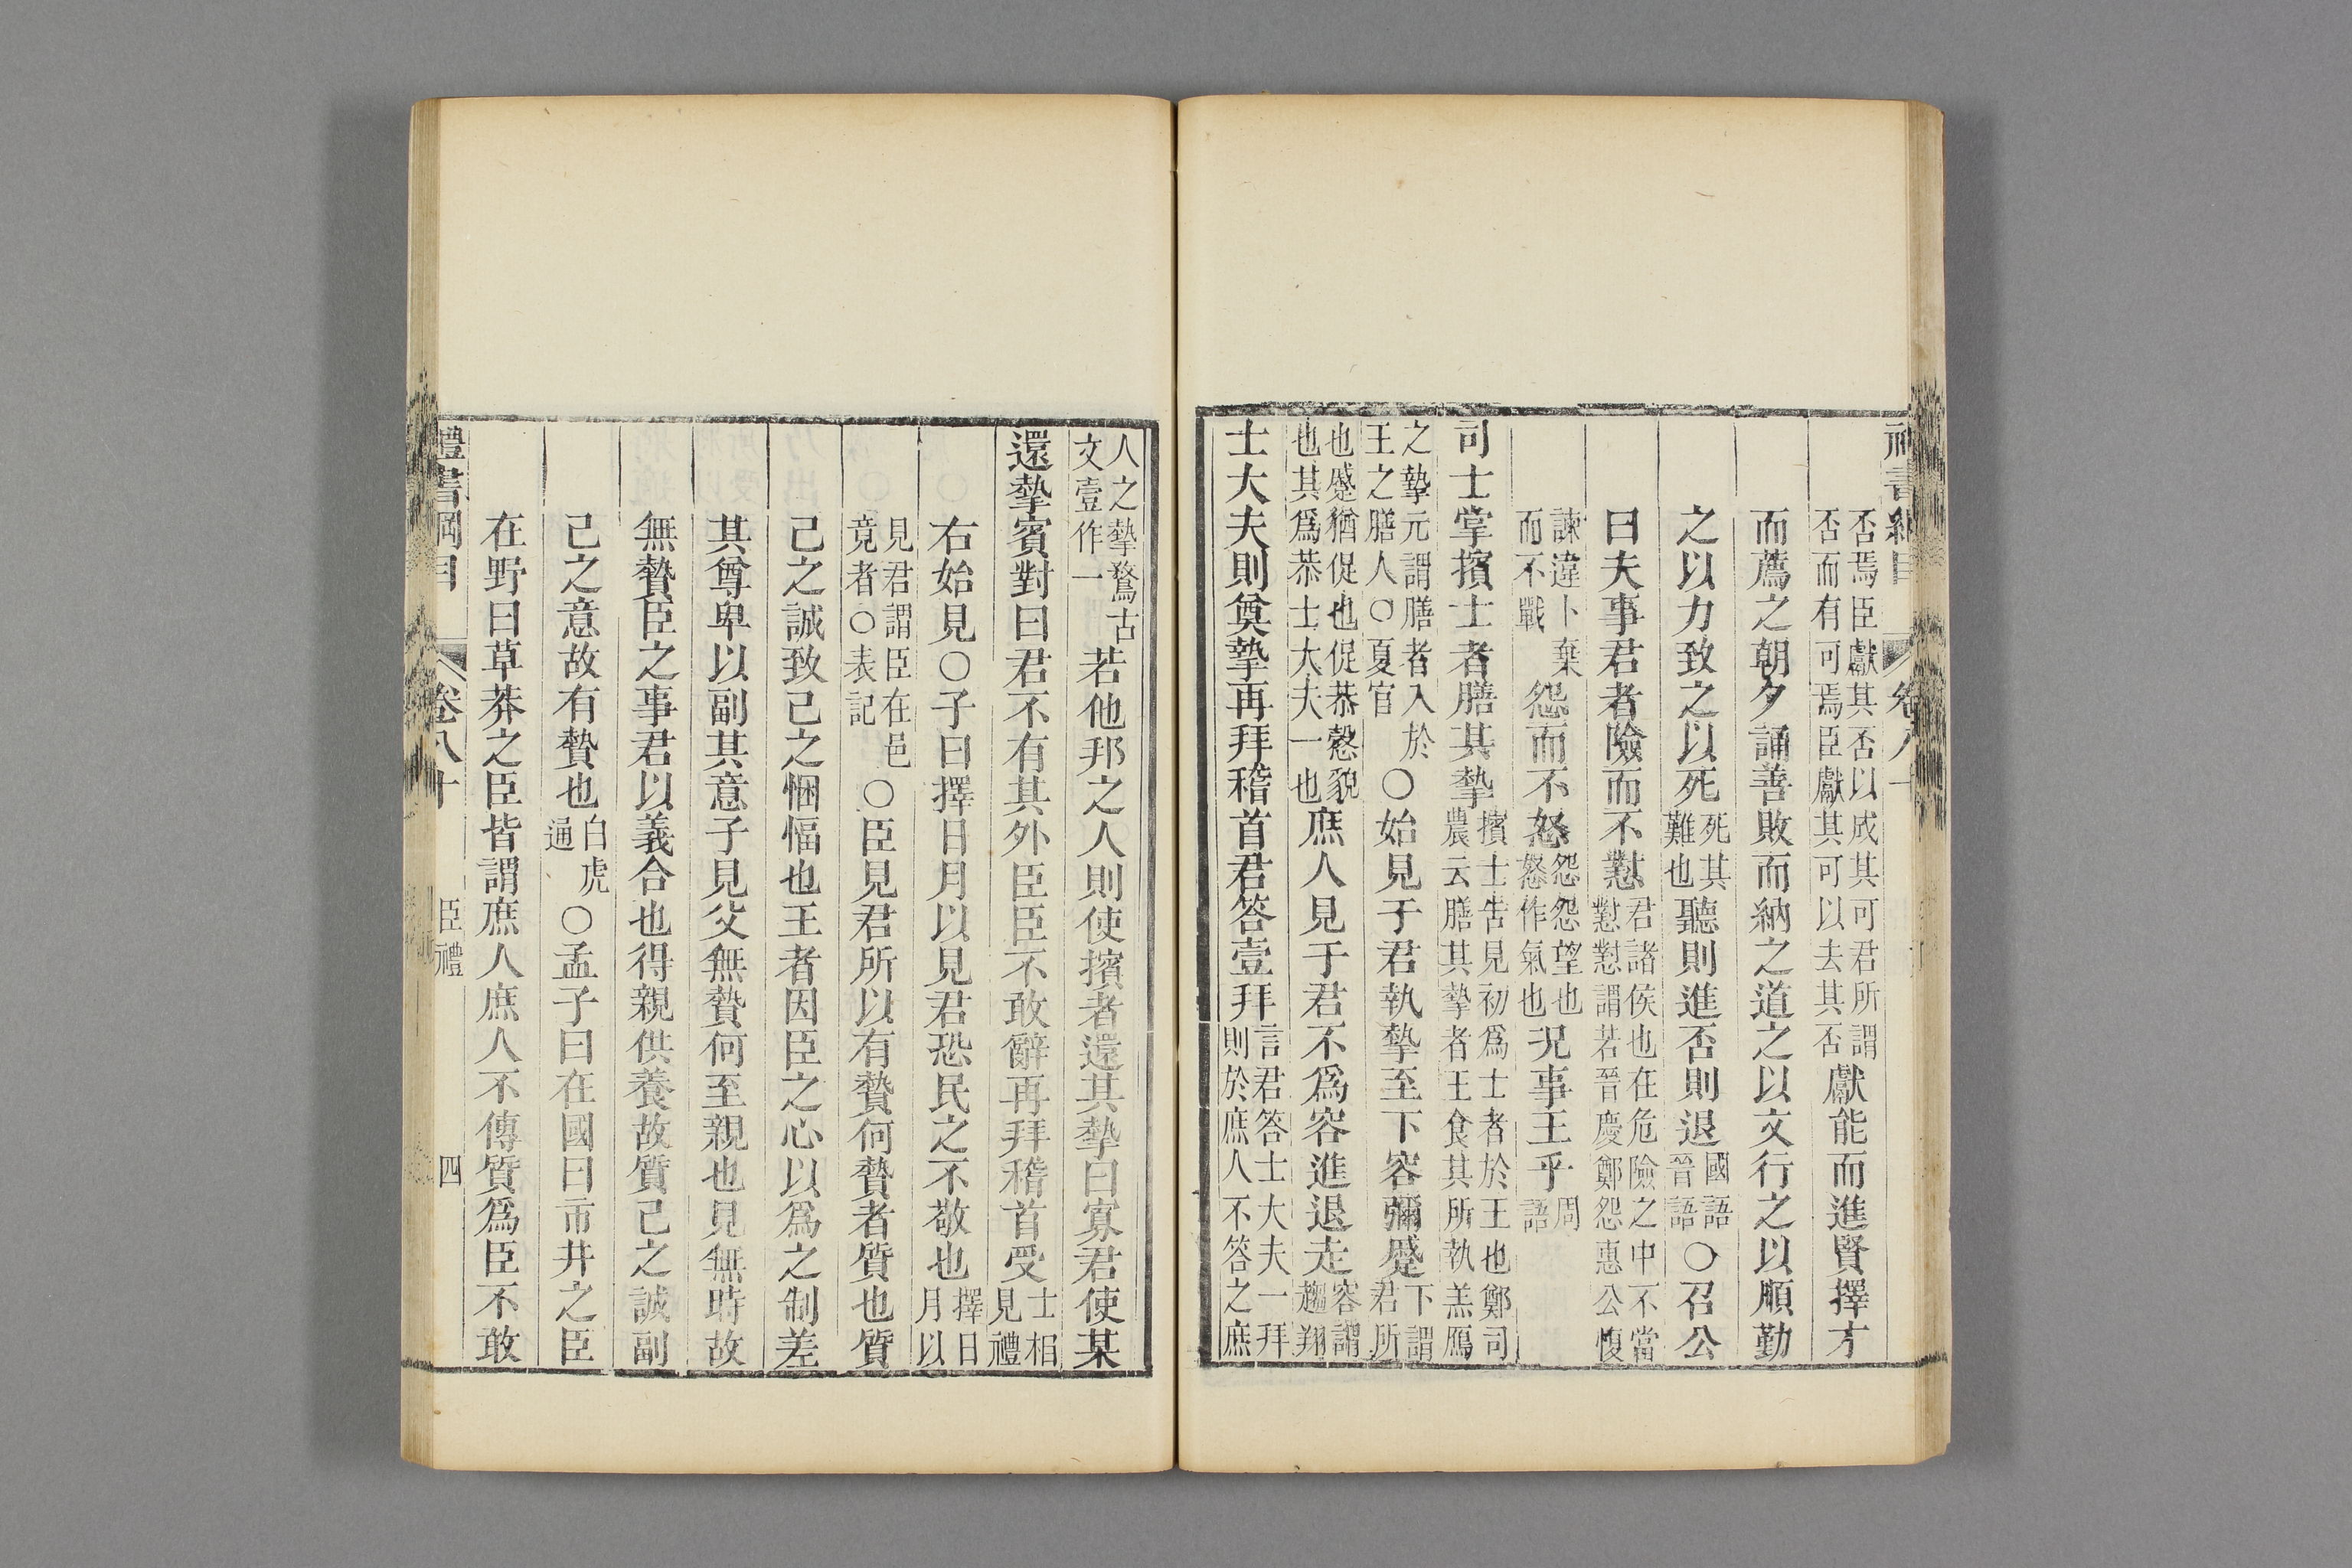 否焉臣獻其否以成其可君所謂
否而有可焉臣獻其可以去其否
獻能而進賢擇才
而薦之朝夕誦善敗而納之道之以文行之以順勤
之以力致之以死
死其
難也
聽則進否則退
國語
晉語
○召公
曰夫事君者險而不懟
君諸侯也在危險之中不當
懟懟謂若晉慶鄭怨惠公愎
諫違卜棄
而不戰
怨而不怒
怨怨望也
怒作氣也
况事王乎
周
語
司士掌擯士者膳其摯
擯士告見初爲士者於王也鄭司
農云膳其摯者王食其所執羔鴈
之摯元謂膳者入於
王之膳人○夏官
○始見于君執摯至下容彌蹙
下謂
君所
也蹙猶促也促恭慤貌
也其爲恭士大夫一也
庶人見于君不爲容進退走
容謂
趨翔
士大夫則奠摯再拜稽首君答壹拜
言君答士大夫一拜
則於庶人不答之庶
人之摯鶩古
文壹作一
若他邦之人則使擯者還其摯曰寡君使某
還摯賓對曰君不有其外臣臣不敢辭再拜稽首受
士相
見禮
右始見○子曰擇日月以見君恐民之不敬也
擇日
月以
見君謂臣在邑
竟者○表記
○臣見君所以有贄何贄者質也質
己之誠致己之悃愊也王者因臣之心以爲之制差
其尊卑以副其意子見父無贄何至親也見無時故
無贄臣之事君以義合也得親供養故質己之誠副
己之意故有贄也
白虎
通
○孟子曰在國曰市井之臣
在野曰草莽之臣皆謂庶人庶人不傳質爲臣不敢
禮書綱目
卷八十
臣禮
四